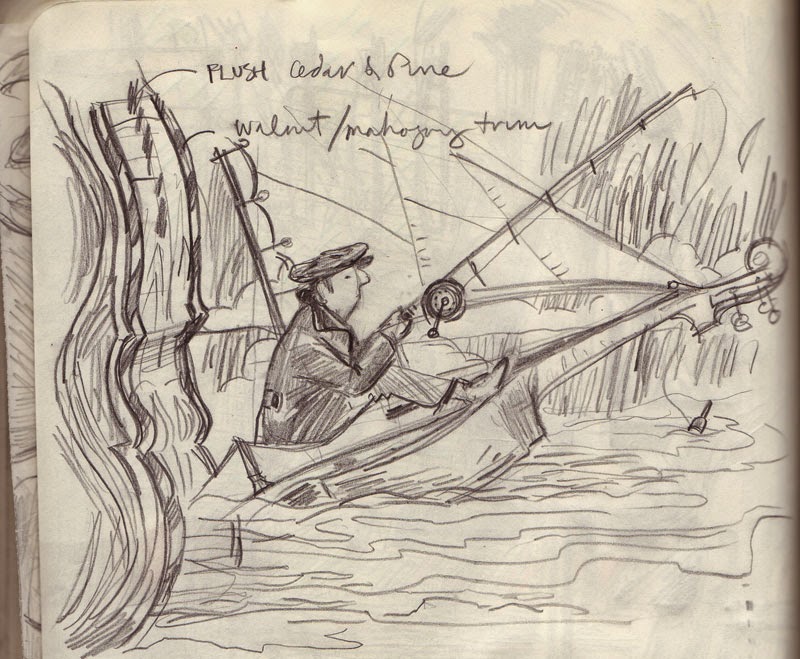 PLUSH Cedar & Pine
walnut/mahogany trim